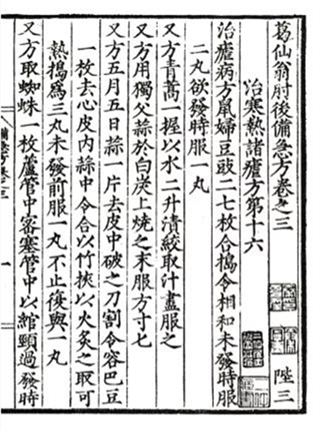 葛仙翁肘後備急方卷之三
陛三
治寒熱諸瘧方第十六
治瘧病方鼠婦豆豉二七枚合搗令相和未發時服
二丸欲發時服一丸
又方青蒿一握以水二升漬絞取汁盡服之
又方用獨父蒜於白炭上燒之末服方寸七
又方五月五日蒜一片去皮中破之刀割令容巴豆
一枚去心皮內蒜中令合以竹挾以火炙之取可
熱搗爲三丸未發前服一丸不止復與一丸
又方取蜘蛛一枚蘆管中密塞管中以綰頸過發時